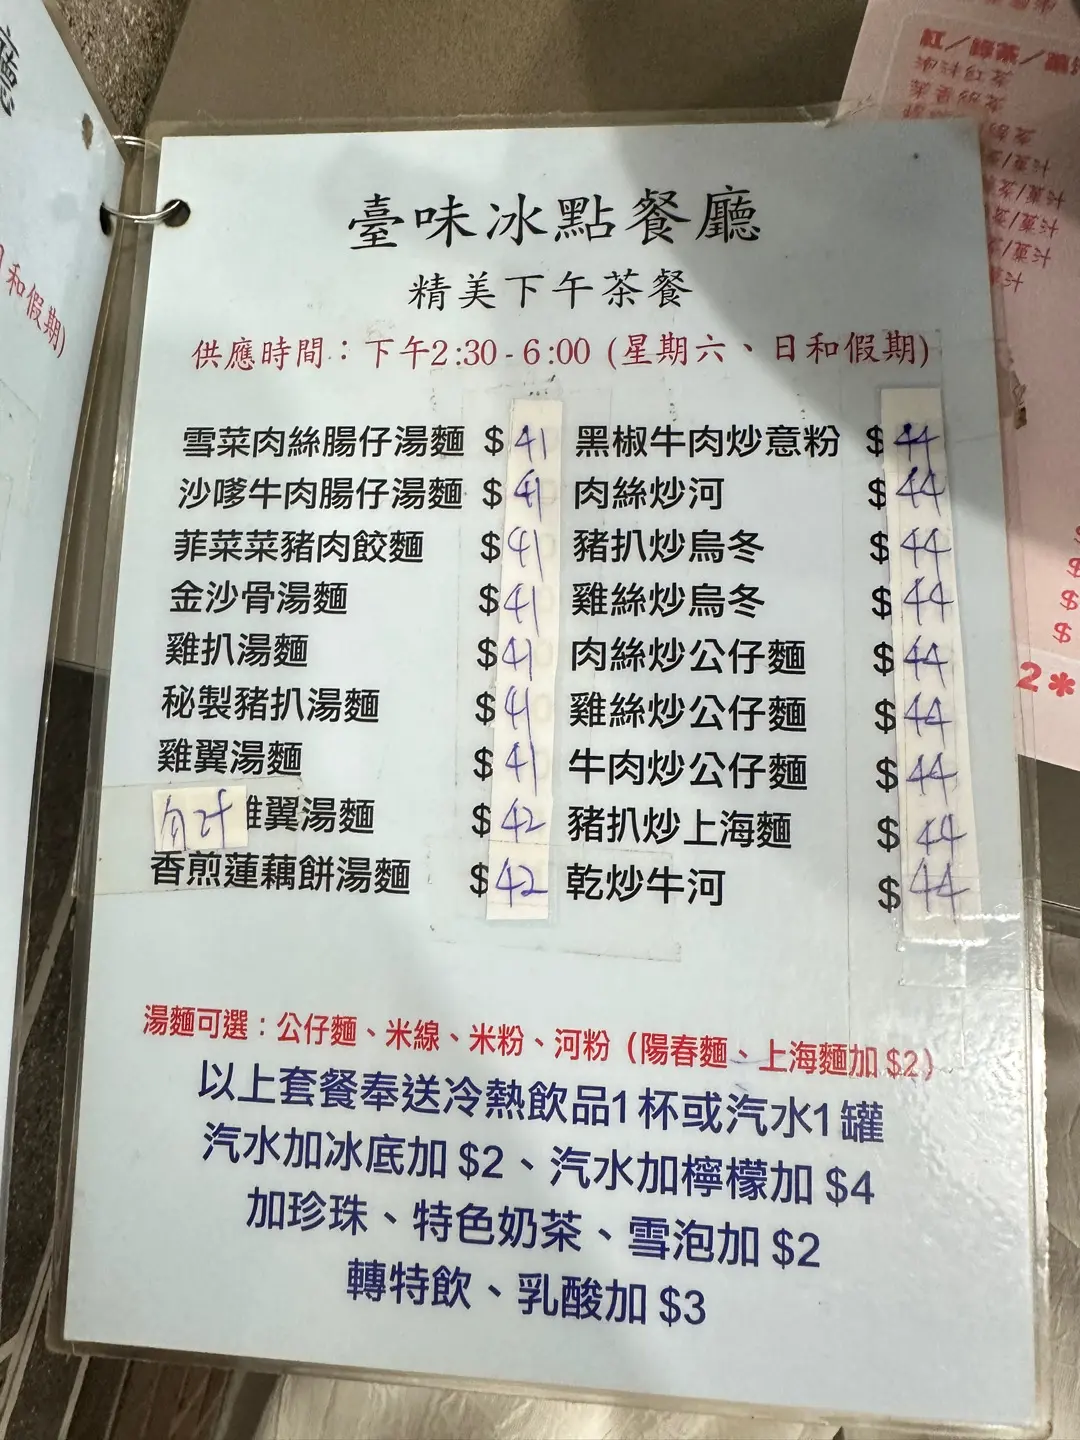 廳
和假期)
臺味冰點餐廳
精美下午茶餐
供應時間：下午2:30-6:00 (星期六、日和假期)
雪菜肉絲腸仔湯麵 $41
沙嗲牛肉腸仔湯麵 $41
菲菜菜豬肉餃麵 $41
金沙骨湯麵 $41
雞扒湯麵 $41
秘製豬扒湯麵 $41
雞翼湯麵 $41
雞翼湯麵 $42
香煎蓮藕餅湯麵 $42
黑椒牛肉炒意粉 $44
肉絲炒河 $44
豬扒炒烏冬 $44
雞絲炒烏冬 $44
肉絲炒公仔麵 $44
雞絲炒公仔麵 $44
牛肉炒公仔麵 $44
豬扒炒上海麵 $44
乾炒牛河 $44
湯麵可選：公仔麵、米線、米粉、河粉（陽春麵、上海麵加 $2）
以上套餐奉送冷熱飲品1杯或汽水1罐
汽水加冰底加 $2、汽水加檸檬加 $4
加珍珠、特色奶茶、雪泡加 $2
轉特飲、乳酸加 $3
$
$
$
$
2*